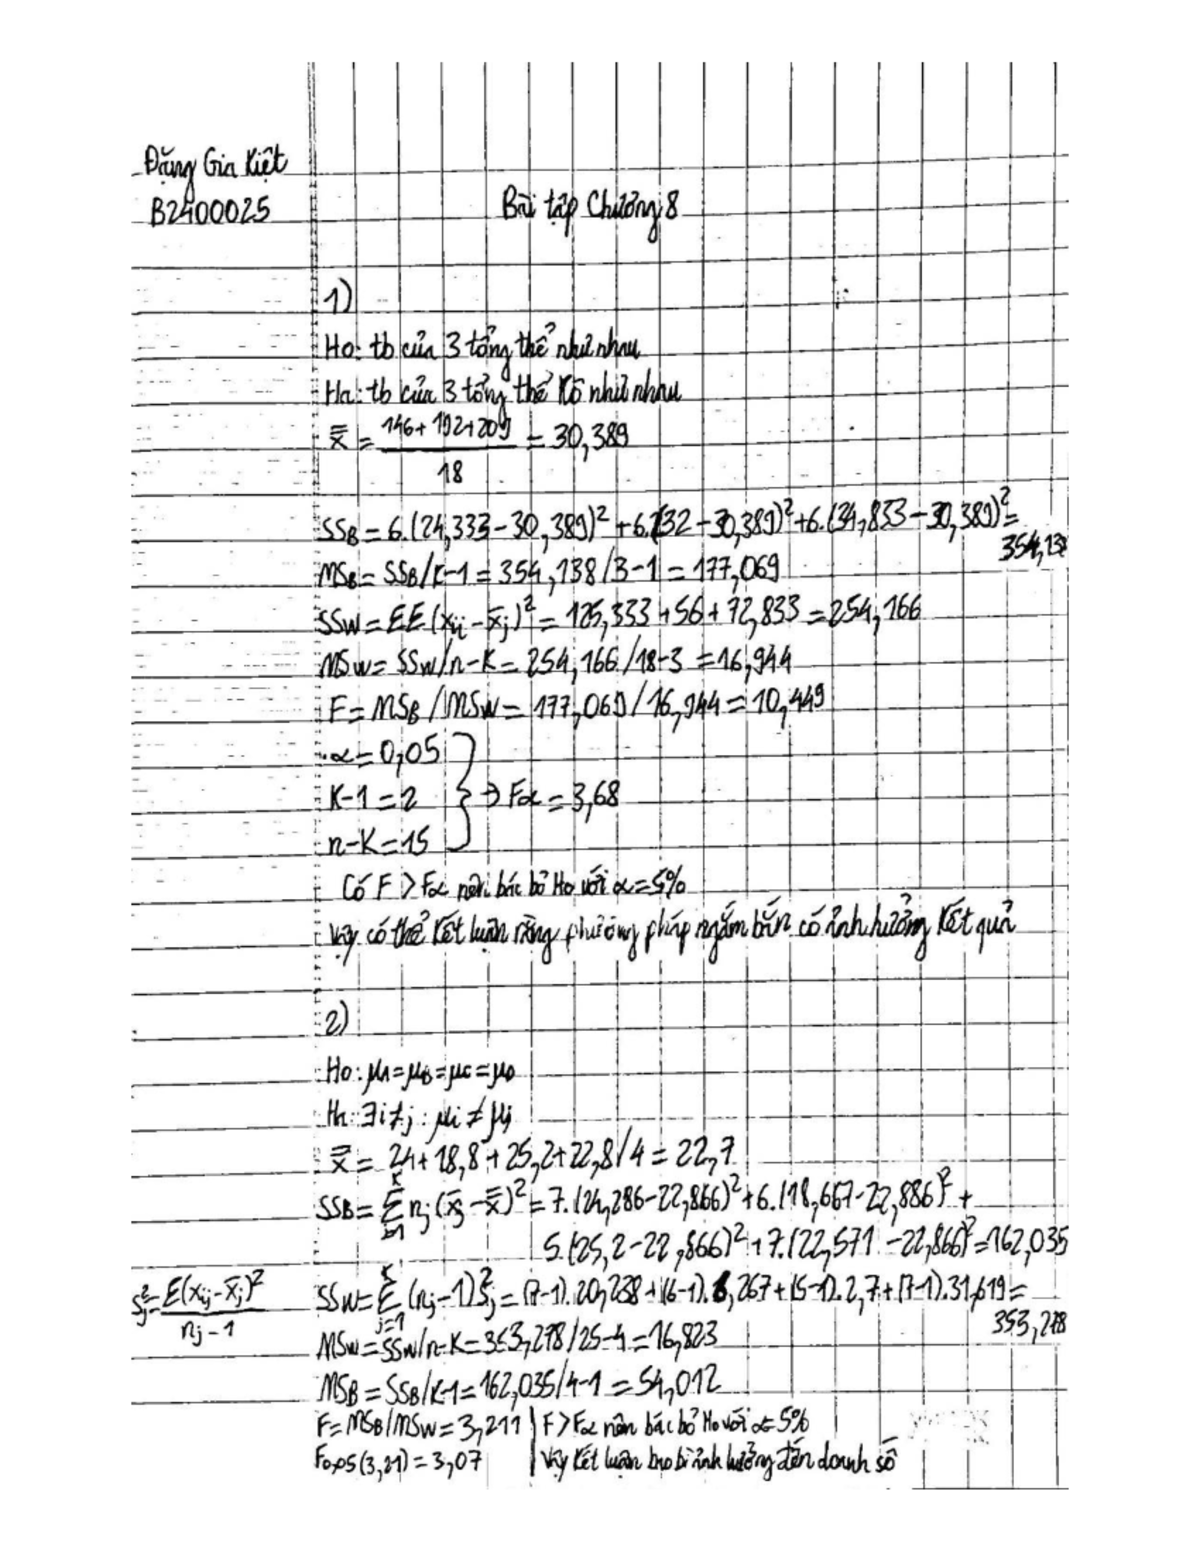 Đặng Gia Kiệt
B2400025
Bài tập Chương 8
1)
Ho: tb của 3 tổng thể như nhau
Ha: tb của 3 tổng thể Kô như nhau
x̿ = 146+192+209 / 18 = 30,389
SSB = 6.(24,333-30,389)² + 6.(32-30,389)² + 6.(34,833-30,389)² =
354,138
MSB = SSB/K-1 = 354,138/3-1 = 177,069
SSW = ΣΣ(xij - x̄j)² = 125,333 + 56 + 72,833 = 254,166
MSW = SSW/n-K = 254,166/18-3 = 16,944
F = MSB/MSW = 177,069/16,944 = 10,449
α = 0,05
K-1 = 2 } → Fα = 3,68
n-K = 15
Có F > Fα nên bác bỏ Ho với α = 5%
Vậy có thể Kết luận rằng phương pháp ngắm bắn có ảnh hưởng Kết quả
2)
Ho: μA = μB = μC = μD
Ha: ∃i≠j: μi ≠ μj
x̿ = 24 + 18,8 + 25,2 + 22,8/4 = 22,7
SSB = Σ nj (x̄j - x̿)² = 7.(24,286-22,866)² + 6.(18,667-22,886)² +
5.(25,2-22,866)² + 7.(22,571-22,866)² = 162,035
Sj² = Σ(xij - x̄j)² / nj - 1
SSW = Σ (nj-1)Sj² = (7-1).20,238 + (6-1).6,267 + (5-1).2,7 + (7-1).31,619 =
353,278
MSW = SSW/n-K = 353,278/25-4 = 16,823
MSB = SSB/K-1 = 162,035/4-1 = 54,012
F = MSB/MSW = 3,211 | F > Fα nên bác bỏ Ho với α = 5%
F0,05(3,21) = 3,07 | Vậy Kết luận bao bì ảnh hưởng đến doanh số